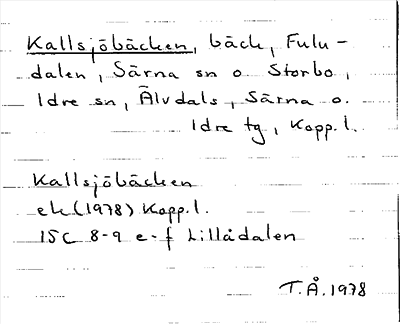 Kallsjöbäcken, bäck, Fulu-
dalen, Särna sn o Storbo,
Idre sn, Älvdals, Särna o.
Idre tg, Kopp.l.
Kallsjöbäcken
ek (1978) Kopp.l.
15C 8-9 e-f Lillådalen
T.Å. 1978